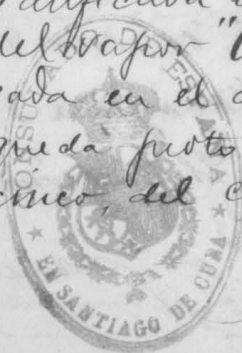 del vapor "
ada en el
queda
cinco, del
CONSULADO DE ESPAÑA
EN SANTIAGO DE CUBA